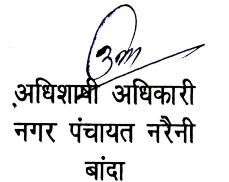 अधिशाषी अधिकारी
नगर पंचायत नरैनी
बांदा